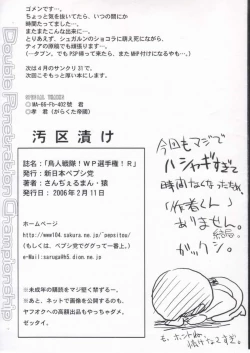 ゴメンです…。
ちょっと気を抜いてたら、いつの間にか
時間たってました…。
またまたこんな出来に…。
とりあえず、シュガルンのショコラに萌え死にながら、
ティアの原稿でも頑張ります…。
次は4月のサンクリ31で、
そこそこのモノを出したいと思います。
SPECIAL THANKS
◎MA-66-Fb-402號 君
◎孝 君（がらくた帝國）
汚区漬け
誌名：「鳥人戦隊！WP選手権！R」
発行：新日本ペプシ党
著者：さんぢぇるまん・猿
発行日：2006年2月11日
ホームページ
http://www104.sakura.ne.jp/~pepsitou/
(もしくは、ペプシ党でググって一番上。)
e-Mail:saruga@h5.dion.ne.jp
※未成年の購読をマジ堅く禁ずる－。
※あと、ネットで画像を公開するのも、
ヤフオクへの高額出品もやっちゃダメ。
ゼッタイ。
Double Penetration Championship
今回もマジで
ハシャギすぎて
時間なくなったため、
「作者くん」
ありません。
結局。
ガックシ。